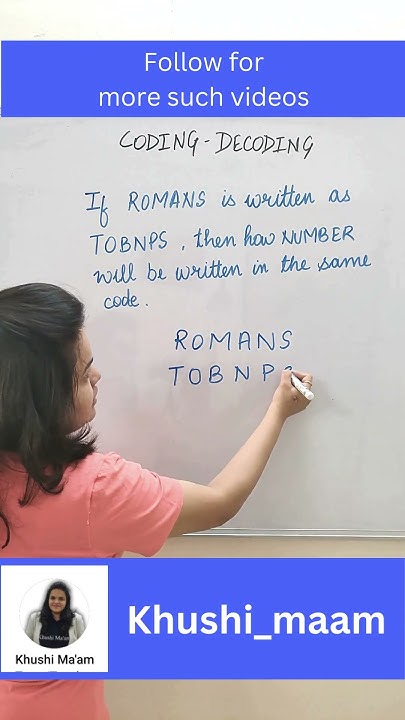 Follow for
more such videos
CODING-DECODING
If ROMANS is written as
TOBNPS, then how NUMBER
will be written in the same
code.
ROMANS
TOBNP
Khushi Ma'am
Khushi Ma'am
Khushi_maam